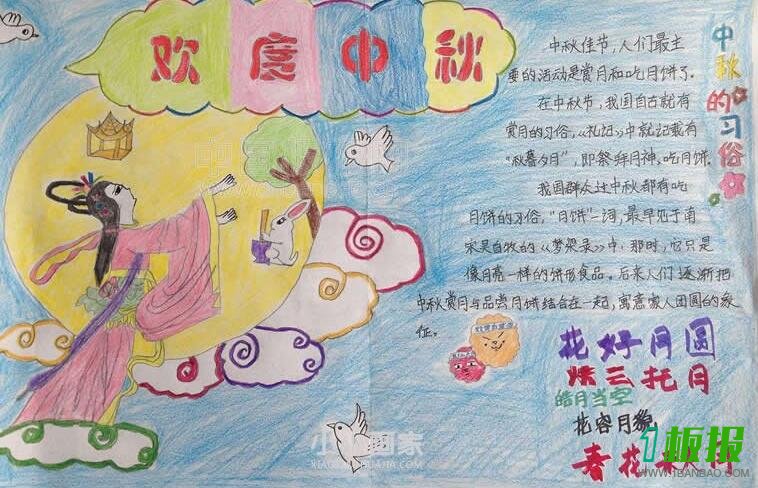 欢度中秋
中秋的习俗
中秋佳节，人们最主
要的活动是赏月和吃月饼了。
在中秋节，我国自古就有
赏月的习俗，《礼记》中就记载有
“秋暮夕月”，即祭拜月神。吃月饼。
我国群众过中秋都有吃
月饼的习俗，“月饼”一词，最早见于南
宋吴自牧的《梦梁录》中，那时，它只是
像月亮一样的饼形食品。后来人们逐渐把
中秋赏月与品尝月饼结合在一起，寓意家人团圆的象
征。
花好月圆
烘云托月
皓月当空
花容月貌
春花秋月
1板报
WWW.1BANBAO.COM
画家